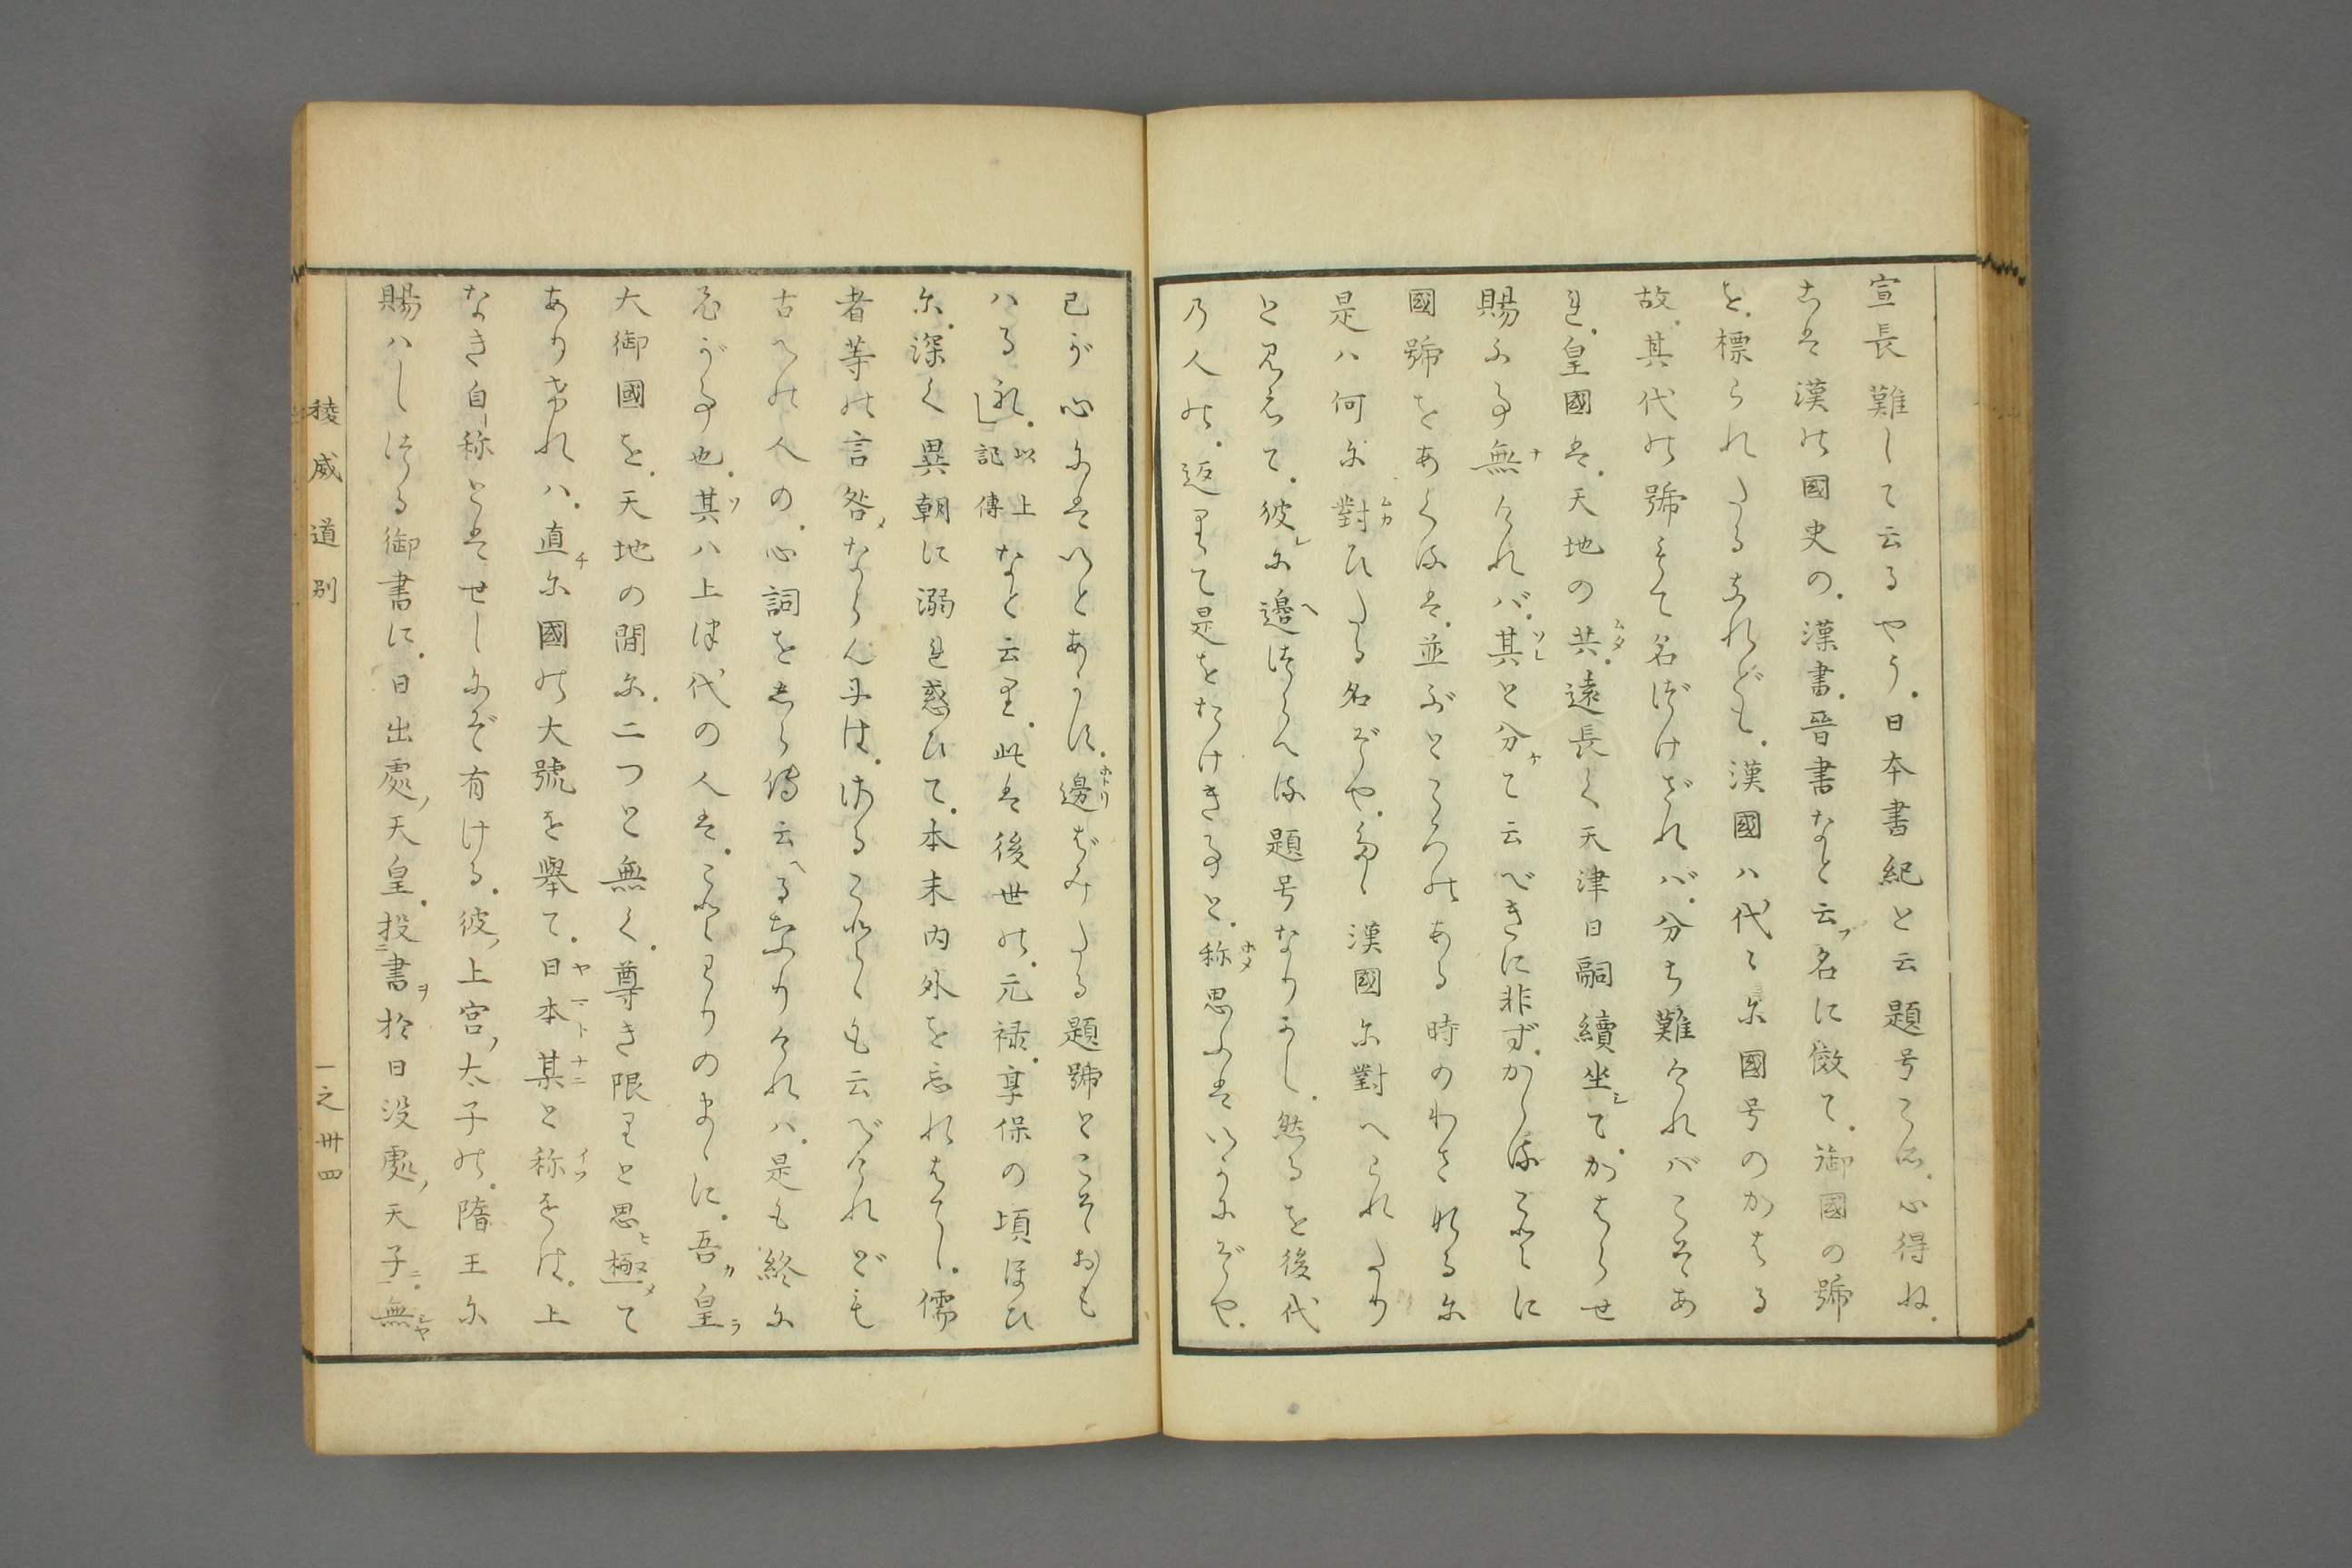 宣長難して云るやう。日本書紀と云題号こそ。心得ね。
こは漢の國史の。漢書。晉書など云フ名に傚て。御國の號
を。標られたるなれども。漢國ハ代〻尓國号のかはる
故。其代の號もて名づけざれバ。分ち難ければこそあ
れ。皇國は。天地の共ムタ。遠長く天津日嗣續坐シて。かはらせ
賜ふ事無ナければ。其ソレと分ケて云べきに非ず。かゝることに
國號をあぐるは。並ぶところのある時のわざなるに
是ハ何尓對ムカひたる名ぞや。たゞ漢國尓對へられたり
と見えて。彼レに邊ヘつらへる題号なりかし。然るを後代
乃人の。返りて是をたけき事と。称ホメ思ふはいかにぞや。
己が心にはいとあかず。邊ホトリばみたる題號とこそおも
ハるれ。」以上記傳 など云り。此は後世の。元禄。享保の頃ほひ
尓。深く異朝に溺れ惑ひて。本末内外を忘れはてし。儒
者等の言咎メならんには。さることゝも云べけれども
古への人の。心詞をしら傳云へるなりければ。是も終に
強がごと也。其ソハ上つ代の人は。ことわりのまゝに。吾カ皇ラ
大御國を。天地の間尓。二つと無く。尊き限りと思ヒ極メて
ありければ。直チ尓國の大號を擧て。日ヤ本マト某ナニと称イフをば。上
なき自称とはせしにぞ有ける。彼ノ上宮ノ太子の。隋王尓
賜ハしける御書に。日出處ノ天皇。投二書ヲ於日没處ノ天子ニ一。無シヤ
稜威道別　一之卅四